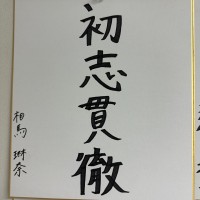 初志貫徹
相馬 琳奈